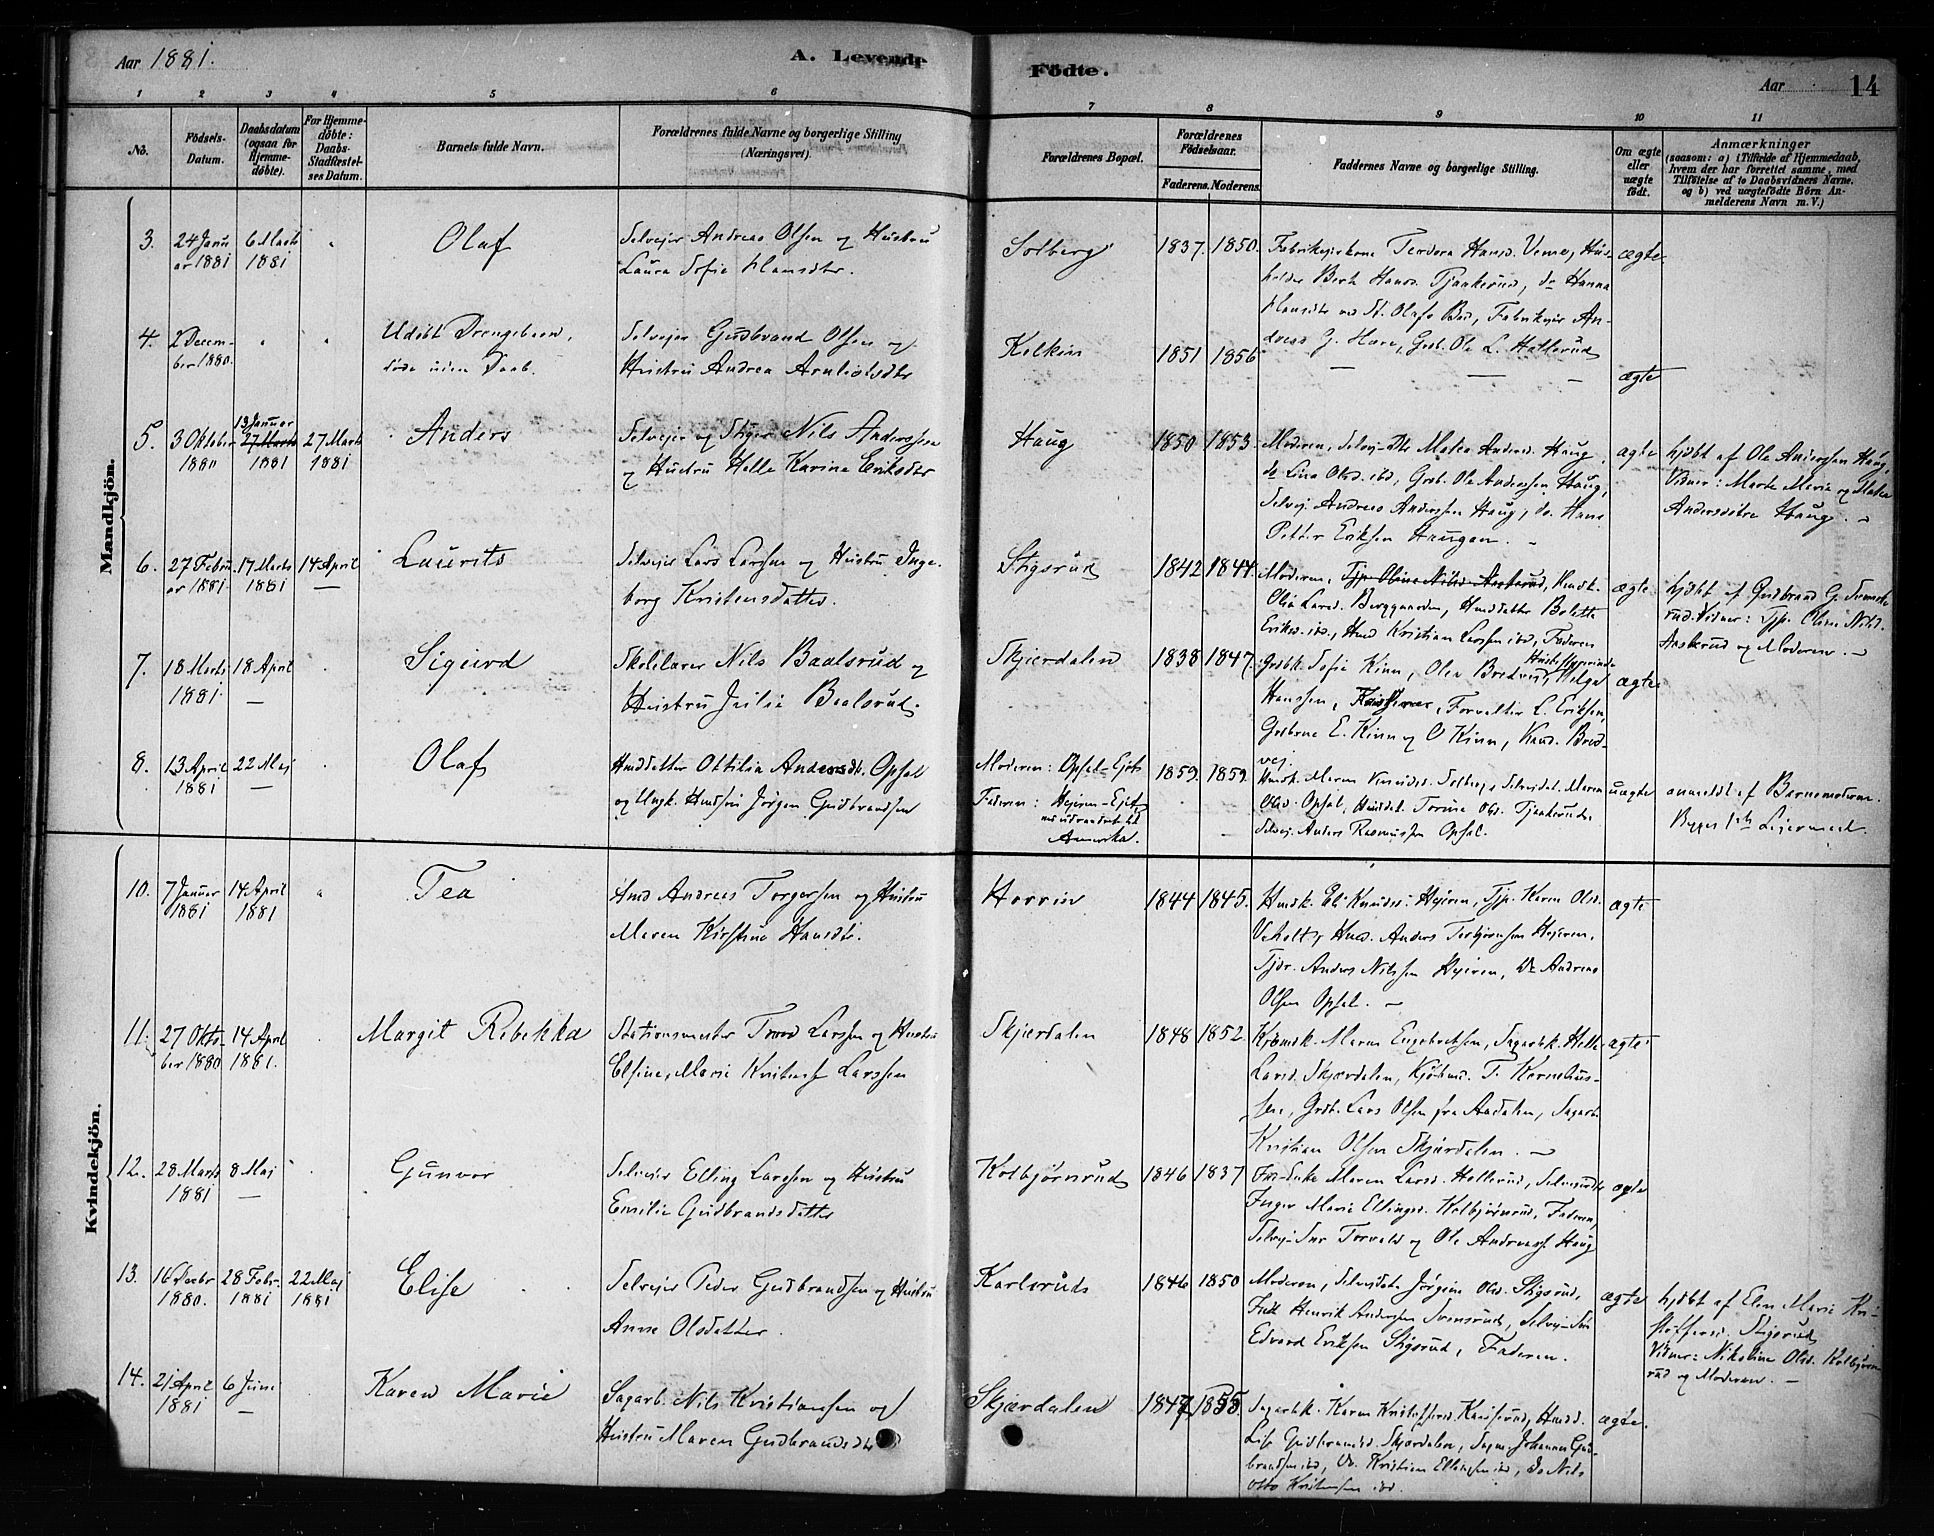 Aar 1881.
A. Levende
Födte.
Aar
14
1 2 3 4 5 6 7 8 9 10 11
No.
Födsels-
Datum.
Daabsdatum
(ogsaa for
Hjemme-
döbte).
For Hjemme-
döbte:
Daabs-
Stadfæstel-
ses Datum.
Barnets fulde Navn.
Forældrenes fulde Navne og borgerlige Stilling
(Næringsvei).
Forældrenes Bopæl.
Forældrenes
Födselsaar.
Faderens. Moderens.
Faddernes Navne og borgerlige Stilling.
Om ægte
eller
uægte
födt.
Anmærkninger
(saasom: a) i Tilfælde af Hjemmedaab,
hvem der har forrettet samme, med
Tilföielse af to Daabsvidners Navne.
og b) ved uægtefödte Börn An-
melderens Navn m. V.)
Mandkjön.
3.
24 Janu
ar 1881
6 Marts
1881
Olaf
Selveier Andreas Olsen og Hustru
Laura Sofie Hansdtr.
Solberg
1837. 1850.
Hansd. Veme, Hus-
holder Berte Hansd. Tjankerud, do Hanna
Hansdtr ved St. Olafs Bad, Fabrikeier An-
dreas G. Hære, Grdb. Ole L. Hallerud
ægte
4.
2 Decem-
ber 1880.
Udöbt Drengebarn,
döde uden Daab.
Selveier Gudbrand Olsen og
Hustru Andrea
1851 1856
— — —
ægte
5.
3 Oktober
1880
13 Januar
27 Marts
1881
27 Marts
1881
Anders
Selveier og Stiger Nils Anderssen
og Hustru Helle Karine Eriksdtr
Haug
1850 1853.
Moderen, Selvei-Dtr Matea Andersd. Haug,
do Lina Olsd. ibd, Grdb. Ole Anderssen Haug,
Selvei. Andreas Anderssen Haug, do Hans
Petter Eriksen Haugen. —
ægte
hjdöbt af Ole Anderssen Haug,
Vidner: Marte Marie og Matea
Andersdötre Haug. —
6.
27 Februar
1881.
17 Marts
1881
14 April
—
Laurits
Selveier Lars Larssen og Hustru Inge-
borg Kristensdatter.
Stigsrud
1842 1844
Moderen, Tjp. Oline Nilsd. Aaskerud, Husdt.
Olia Larsd. Berggaarden, Husdatter Bolette
Eriksd. ibd., Husd Kristian Larssen ibd, Faderen
ægte
hjdöbt af Gudbrand G. Svenske-
rud. Vidner: Tjp. Oline Nilsd.
Aaskerud og Moderen. —
7.
18 Marts
1881.
18 April
—
Sigurd
Skolelærer Nils Baalsrud og
Hustru Julie Baalsrud.
Skjerdalen
1838 1847.
Grdbk. Sofie Kinn, Olea Bredvei, Helga
Hanssen, Forvalter L. Eriksen,
Grdbrne E. Kinn og O Kinn, Kand. Bred-
vej.
ægte
8.
13 April
1881
22 Maj
—
Olaf
Husdatter Ottilia Andersdtr. Opsal
og Ungk. Hussön Jörgen Gudbrandsen
Moderen: Opsal-Ejet
Faderen: Hejeren-Ejet,
nu udvandret til
Amerika.
1859. 1859
Opsal, Husdat. Torine Olsd. Tjankerud,
Selvej. Anders Rasmussen Opsal.
uægte
anmeldt af Barnemoderen.
Begges 1ste Leiermaal.
Kvindekjön.
10.
7 Januar
1881
14 April
1881
Tea
Hmd Andreas Torgersen og Hustru
Maren Kirstine Hansdtr.
Hovrin
1844 1845.
Hmdk. Eli Knudsd. Hejeren, Tjp. Karen Olsd.
Veholt, Hmd. Anders Torbjörnsen Hejeren,
Tjdr. Anders Nilssen Hejeren, Do Andreas
Olsen Opsal. —
ægte
11.
27 Okto
ber 1880
14 April
1881.
Margit Rebekka
Stationsmester Larssen og Hustru
Elsine Marie Larssen
Skjærdalen
1848 1852.
Kjömdk. Maren Engebretsen, Sagarbk. Helle
Larsd. Skjærdalen, Kjöbmd. T. Kornelius-
sen, Grdb. Lars Olsen fra Aadalen, Sagarb.
Kristian Olsen Skjærdalen. —
ægte
12.
28 Marts
1881
8 Maj
—
Gunvor
Selveier Elling Larssen og Hustru
Emilie Gudbrandsdatter
Kolbjörnsrud
1846 1837
Maren Larsd. Hellerud,
Inger Marie Ellingsd. Kolbjörnsrud, Faderen,
Selvej-Sönr Torvald og Ole Andreass Haug
ægte
13.
16 Decbr
1880.
28 Febr.
1881
22 Maj
1881
Elise
Selvejer Peder Gudbrandsen og Hustru
Anne Olsdatter.
Karlsrud
1846 1850
Moderen, Selvejdatr Jörgine Olsd. Stigsrud,
Henrik Andersen Svensrud, Selvej-Sön
Edvard Eriksen Stigsrud, Faderen.
ægte
hjdöbt af Elen Marie Kri-
stoffersd. Stigsrud
Vidner: Nikoline Olsd. Kolbjörns
rud og Moderen. —
14.
21 April
1881
6 Juni
—
Karen Marie
Sagarb. Nils Kristiansen og
Hustru Maren Gudbrandsdtr
Skjærdalen
1847 1855.
Sagarbk. Karen Kristoffersd. Karlsrud, Husd.
Lise Gudbrandsd. Skjærdalen, Sagm. Johannes Gud-
brandsen ibd, Do. Kristian Ellingsen ibd, do Nils
Otto Kristensen ibd.
ægte.